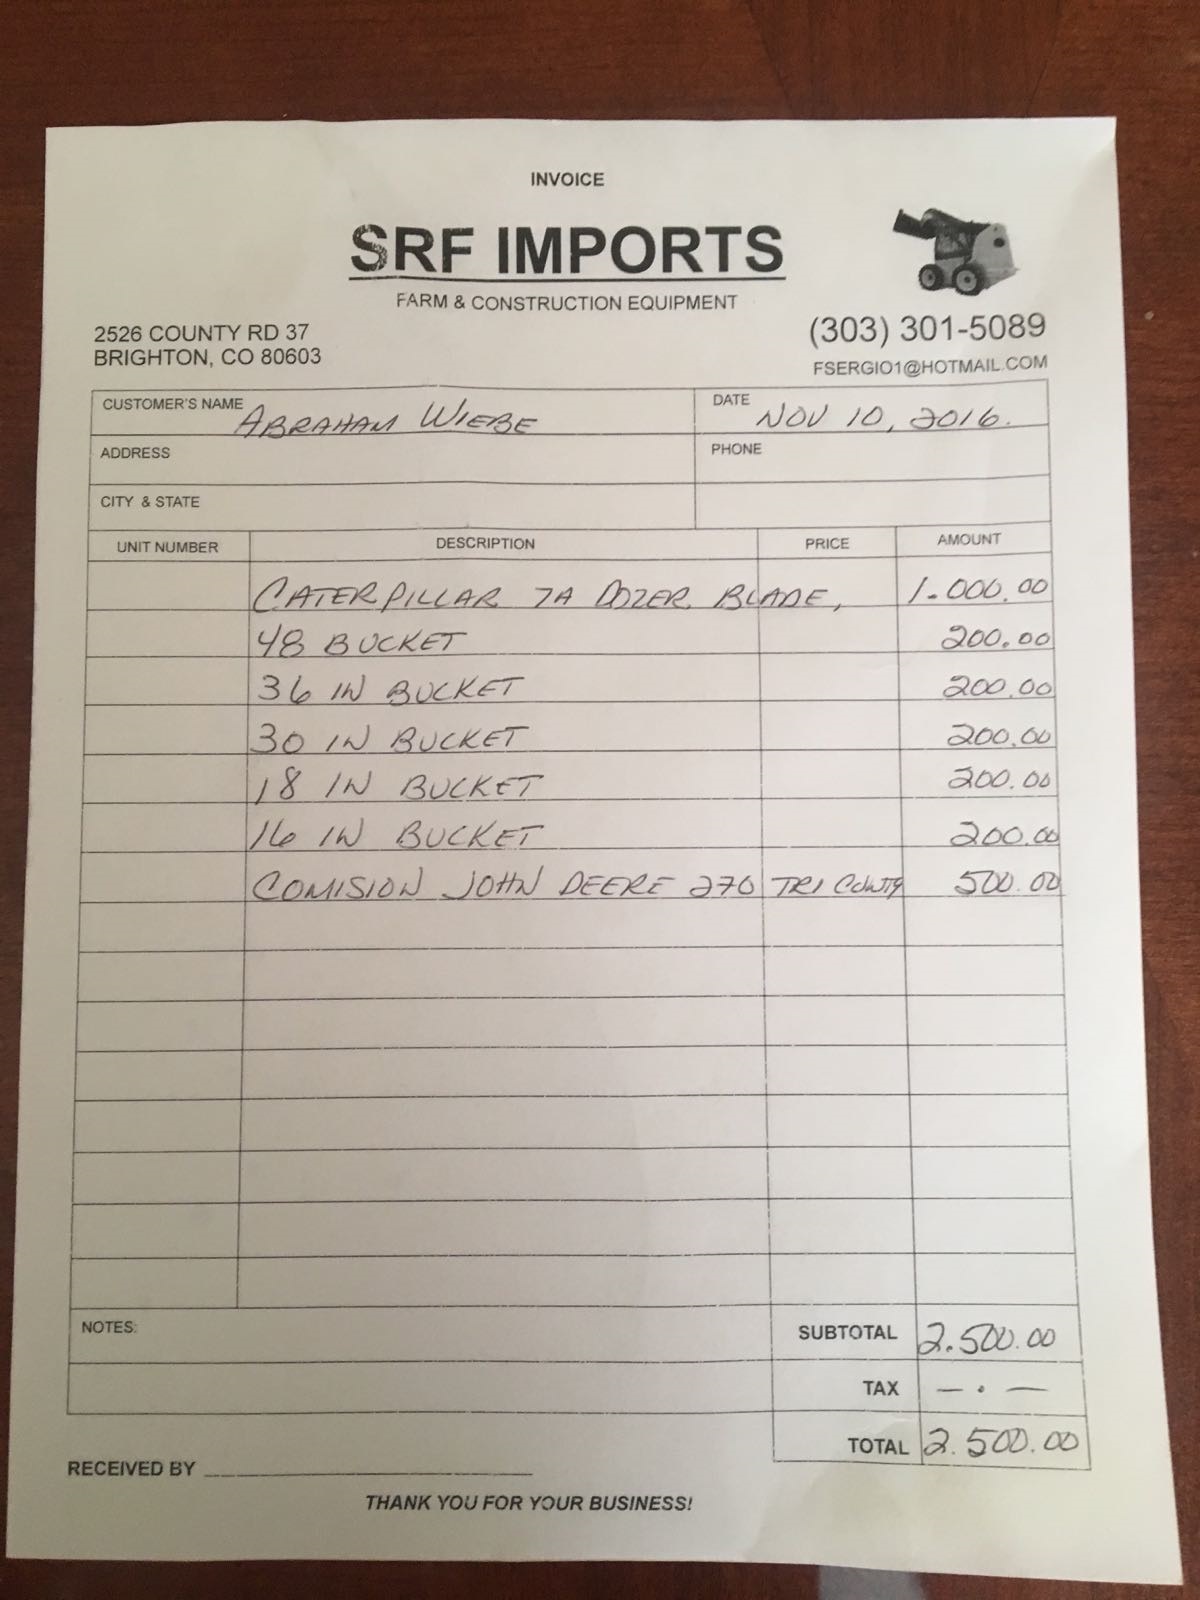 INVOICE
SRF IMPORTS
FARM & CONSTRUCTION EQUIPMENT
2526 COUNTY RD 37
BRIGHTON, CO 80603
(303) 301-5089
FSERGIO1@HOTMAIL.COM
CUSTOMER'S NAME ABRAHAM WIEBE DATE NOV 10, 2016.
ADDRESS PHONE
CITY & STATE
UNIT NUMBER DESCRIPTION PRICE AMOUNT
CATERPILLAR 7A DOZER BLADE, 1.000.00
48 BUCKET 200.00
36 IN BUCKET 200.00
30 IN BUCKET 200.00
18 IN BUCKET 200.00
16 IN BUCKET 200.00
COMISION JOHN DEERE 270 TRI COUNTY 500.00
NOTES: SUBTOTAL 2.500.00
TAX — . —
TOTAL 2.500.00
RECEIVED BY
THANK YOU FOR YOUR BUSINESS!